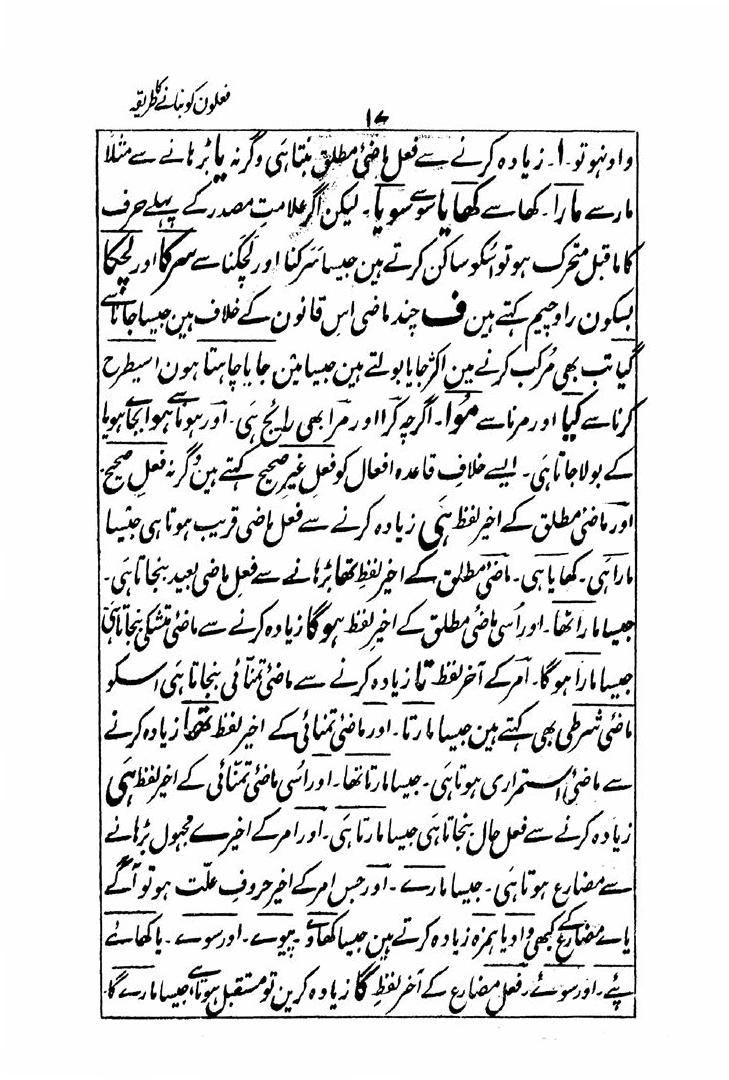 فعلون کو بنانے کا طریقہ
۱۷
واو نہو تو ۔ ا ۔ زیادہ کرنے سے فعل ماضیٔ مطلق بنتا ہی وگرنہ یا بڑہانے سے مثلاً
مار سے مارا ۔ کھا سے کھایا سو سے سویا ۔ لیکن اگر علامتِ مصدر کے پہلے حرف
کا ماقبل متحرک ہو تو اسکو ساکن کرتے ہین جیسا سَرَکنا اور لچکنا سے سرکا اور لچکا
بسکون را و جیم کہتے ہین ف چند ماضی اس قانون کے خلاف ہین جیسا جانا سے
گیا تب بھی مُرکب کرنے مین اکثر جایا بولتے ہین جیسا مین جایا چاہتا ہون اسیطرح
کرنا سے کیا اور مرنا سے مُوا ۔ اگرچہ کرا اور مرا بھی رایج ہی ۔ اور ہونا سے ہوا بجاے ہویا
کے بولا جاتا ہی ۔ ایسے خلافِ قاعدہ افعال کو فعلِ غیر صحیح کہتے ہین وگرنہ فعلِ صحیح
اور ماضیٔ مطلق کے اخیر لفظ ہی زیادہ کرنے سے فعل ماضی قریب ہوتا ہی جیسا
مارا ہی ۔ کھایا ہی ۔ ماضیٔ مطلق کے اخیر لفظِ تھا بڑہانے سے فعلِ ماضی بعید بنجاتا ہی ۔
جیسا مارا تھا ۔ اور اُسی ماضیٔ مطلق کے اخیر لفظ ہوگا زیادہ کرنے سے ماضیٔ متشکی بنجاتا ہی
جیسا مارا ہوگا ۔ امر کے آخر لفظ تا زیادہ کرنے سے ماضیٔ تمنّائی بنجاتا ہی اسکو
ماضیٔ شرطی بھی کہتے ہین جیسا مارتا ۔ اور ماضیٔ تمنائی کے اخیر لفظ تھا زیادہ کرنے
سے ماضیٔ استمراری ہوتا ہی ۔ جیسا مارتا تھا ۔ اور اُسی ماضیٔ تمنّائی کے اخیر لفظ ہی
زیادہ کرنے سے فعل حال بنجاتا ہی جیسا مارتا ہی ۔ اور امر کے اخیر ے مجہول بڑہانے
سے مضارع ہوتا ہی ۔ جیسا مارے ۔ اور جس امر کے اخیر حروفِ علّت ہو تو آگے
یاے مضارع کے کبھی واو یا ہمزہ زیادہ کرتے ہین جیسا کھاوے ۔ پیوے ۔ اور سووے ۔ یا کھائے
پئے ۔ اور سوئے ۔ فعل مضارع کے آخر لفظِ گا زیادہ کرین تو مستقبل ہوتا ہی، جیسا مارے گا